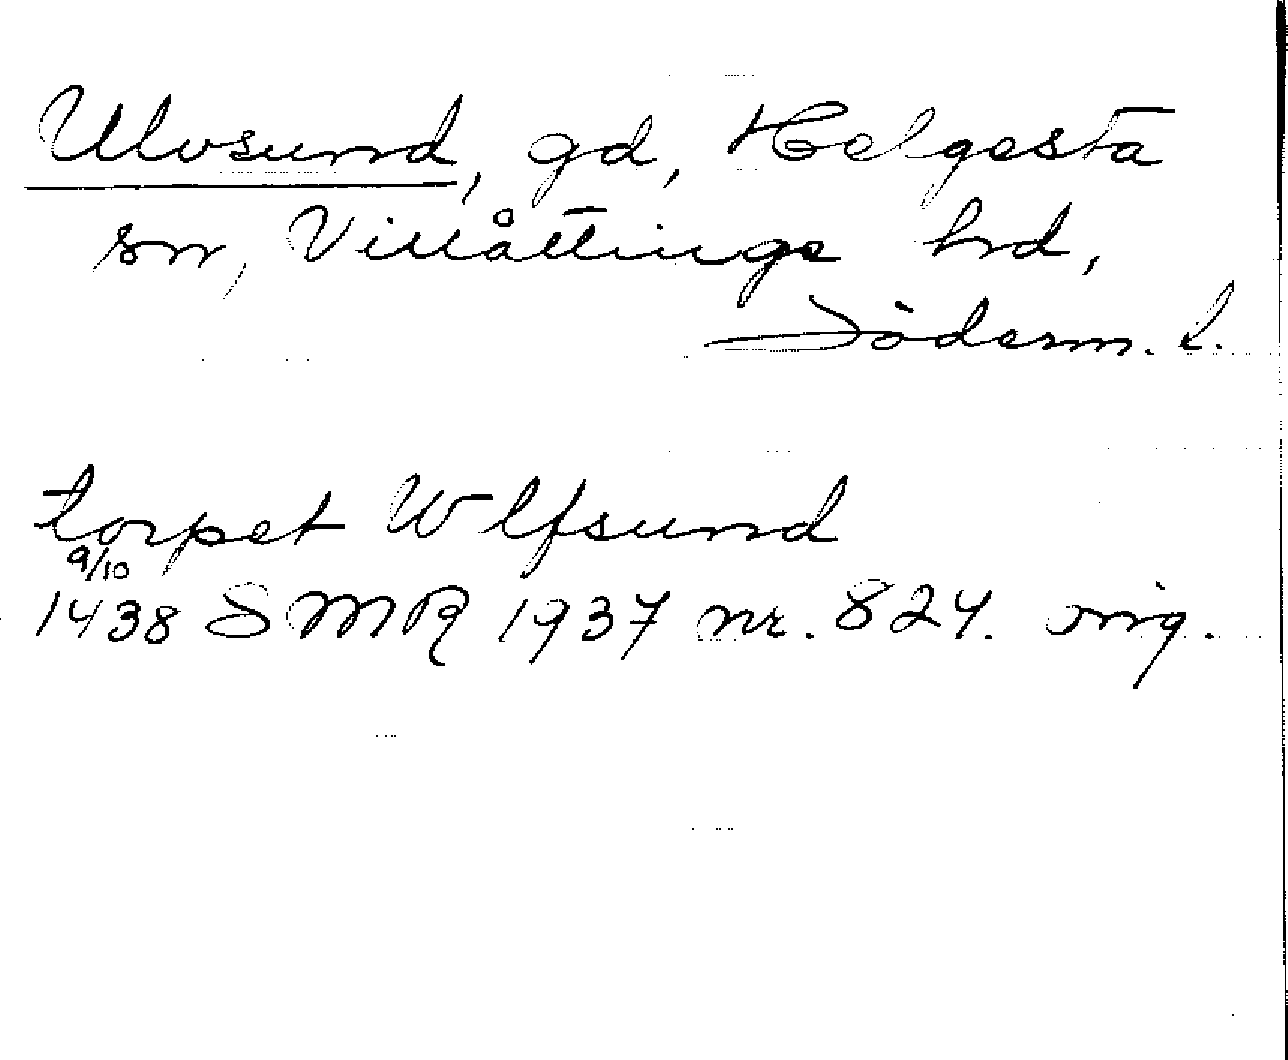 Ulvsund, gd, Helgesta
sn, Villåttinge hrd,
Söderm. l.
torpet Wlfsund
9/10
1438 SMR 1937 nr. 824. orig.